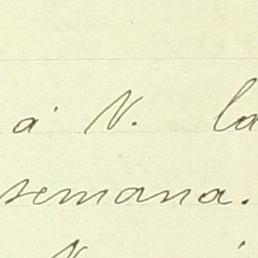 á N. la
semana.
N